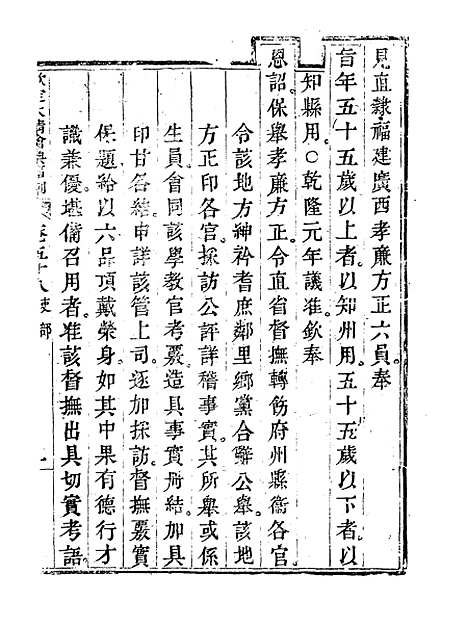 見直隸福建廣西孝廉方正六員奉
旨年五十五歲以上者以知州用五十五歲以下者以
知縣用○乾隆元年議准欽奉
恩詔保舉孝廉方正令直省督撫轉飭府州縣衛各官
令該地方紳衿耆庶鄰里鄉黨合聯公舉該地
方正印各官採訪公評詳稽事實其所舉或係
生員會同該學教官考覈造具事實册結加具
印甘各結申詳該管上司逐加採訪督撫覈實
保題給以六品頂戴榮身如其中果有德行才
識兼優堪備召用者准該督撫出具切實考語
欽定大清會典事例 卷五十八吏部